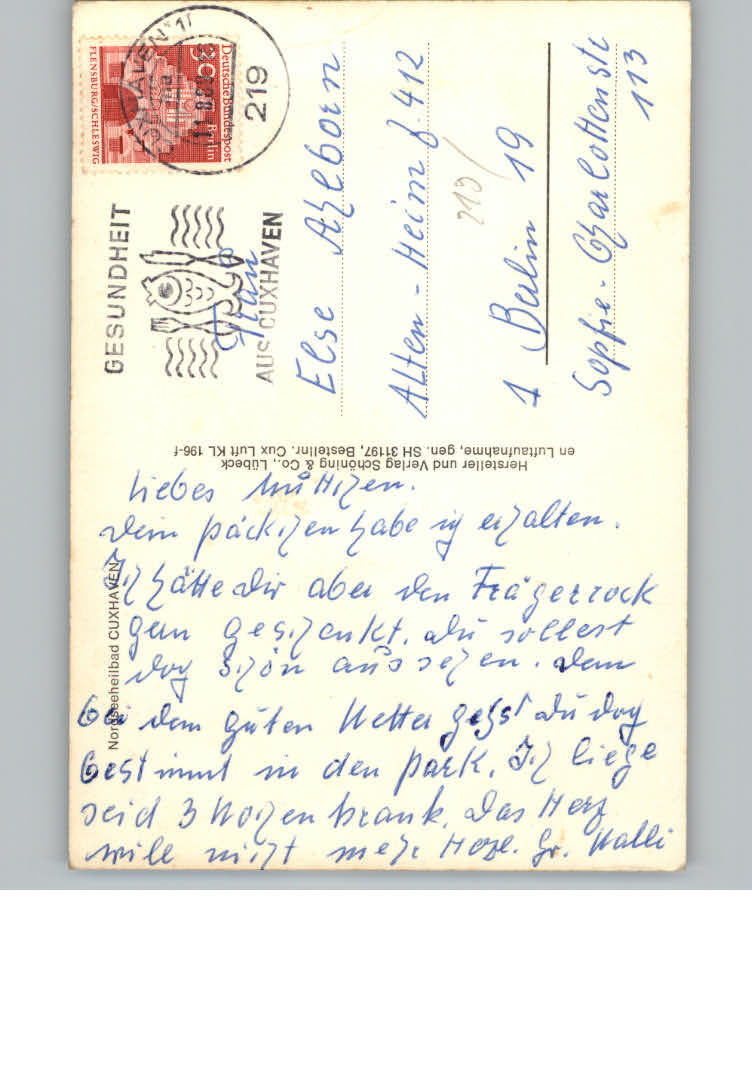 Liebes Muttchen.
Dein päckchen habe ich erhalten.
Ich hätte dir aber den Trägerrock
gern geschenkt. du sollest
doch schön aussehen. denn
bei dem guten Wetter gehst du doch
bestimmt in den park. Ich liege
seid 3 Wochen krank. das Herz
will nicht mehr Herzl. Gr. Walli
Nordseeheilbad CUXHAVEN
Hersteller und Verlag Schöning & Co., Lübeck
en Luftaufnahme, gen. SH 31197, Bestellnr. Cux Luft KL 196-f
Frau
Else Ahlborn
Alten-Heim f. 412
1 Berlin 19
Sophie-Charlottenstr
113
213/
GESUNDHEIT
AUS CUXHAVEN
CUXHAVEN 1
219
Deutsche Bundespost
Berlin
30
FLENSBURG/SCHLESWIG